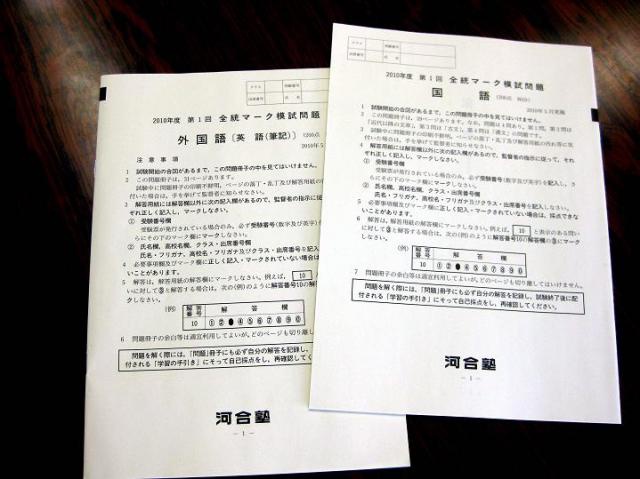 2010年度 第1回 全統マーク模試問題
外国語〔英 語(筆記)〕
注 意 事 項
1 試験開始の合図があるまで、この問題冊子の中を見てはいけません。
2 この問題冊子は、31ページあります。
試験中に問題冊子の印刷不鮮明、ページの落丁・乱丁及び解答用紙の
付いた場合は、手を挙げて監督者に知らせなさい。
3 解答用紙には解答欄以外に次の記入欄があるので、監督者の指示に従って
ぞれ正しく記入し、マークしなさい。
① 受験番号欄
受験票が発行されている場合のみ、必ず受験番号(数字及び英字)
さらにその下のマーク欄にマークしなさい。
② 氏名欄、高校名欄、クラス・出席番号欄
氏名・フリガナ、高校名・フリガナ及びクラス・出席番号を記入
4 必要事項欄及びマーク欄に正しく記入・マークされていない場合は
いことがあります。
5 解答は、解答用紙の解答欄にマークしなさい。例えば、 10
いに対して③と解答する場合は、次の(例)のように解答番号10の解答欄
しなさい。
(例)
解答番号 解 答 欄
10 ① ② ● ④ ⑤ ⑥ ⑦ ⑧ ⑨ ⓪
6 問題冊子の余白等は適宜利用してよいが、どのページも切り離し
問題を解く際には、「問題」冊子にも必ず自分の解答を記録し、
付される「学習の手引き」にそって自己採点をし、再確認してく
河合塾
- 1 -
2010年度 第1回 全統マーク模試問題
国 語
2010年5月実施
1 試験開始の合図があるまで、この問題冊子の中を見てはいけません。
2 この問題冊子は、39ページあります。なお、問題は4問あり、第1問、第2問は
「近代以降の文章」、第3問は「古文」、第4問は「漢文」の問題です。
3 試験中に問題冊子の印刷不鮮明、ページの落丁・乱丁及び解答用紙の汚れ等に気
付いた場合は、手を挙げて監督者に知らせなさい。
4 解答用紙には解答欄以外に次の記入欄があるので、監督者の指示に従って、それ
ぞれ正しく記入し、マークしなさい。
① 受験番号欄
受験票が発行されている場合のみ、必ず受験番号(数字及び英字)を記入し、さ
らにその下のマーク欄にマークしなさい。
② 氏名欄、高校名欄、クラス・出席番号欄
氏名・フリガナ、高校名・フリガナ及びクラス・出席番号を記入しなさい。
5 必要事項欄及びマーク欄に正しく記入・マークされていない場合は、採点できな
いことがあります。
6 解答は、解答用紙の解答欄にマークしなさい。例えば、 10 と表示のある問い
に対して③と解答する場合は、次の(例)のように解答番号10の解答欄の③にマーク
しなさい。
(例)
解答番号 解 答 欄
10 ① ② ● ④ ⑤ ⑥ ⑦ ⑧ ⑨ ⓪
7 問題冊子の余白等は適宜利用してよいが、どのページも切り離してはいけません。
問題を解く際には、「問題」冊子にも必ず自分の解答を記録し、試験終了後に配
付される「学習の手引き」にそって自己採点をし、再確認してください。
河合塾
- 1 -